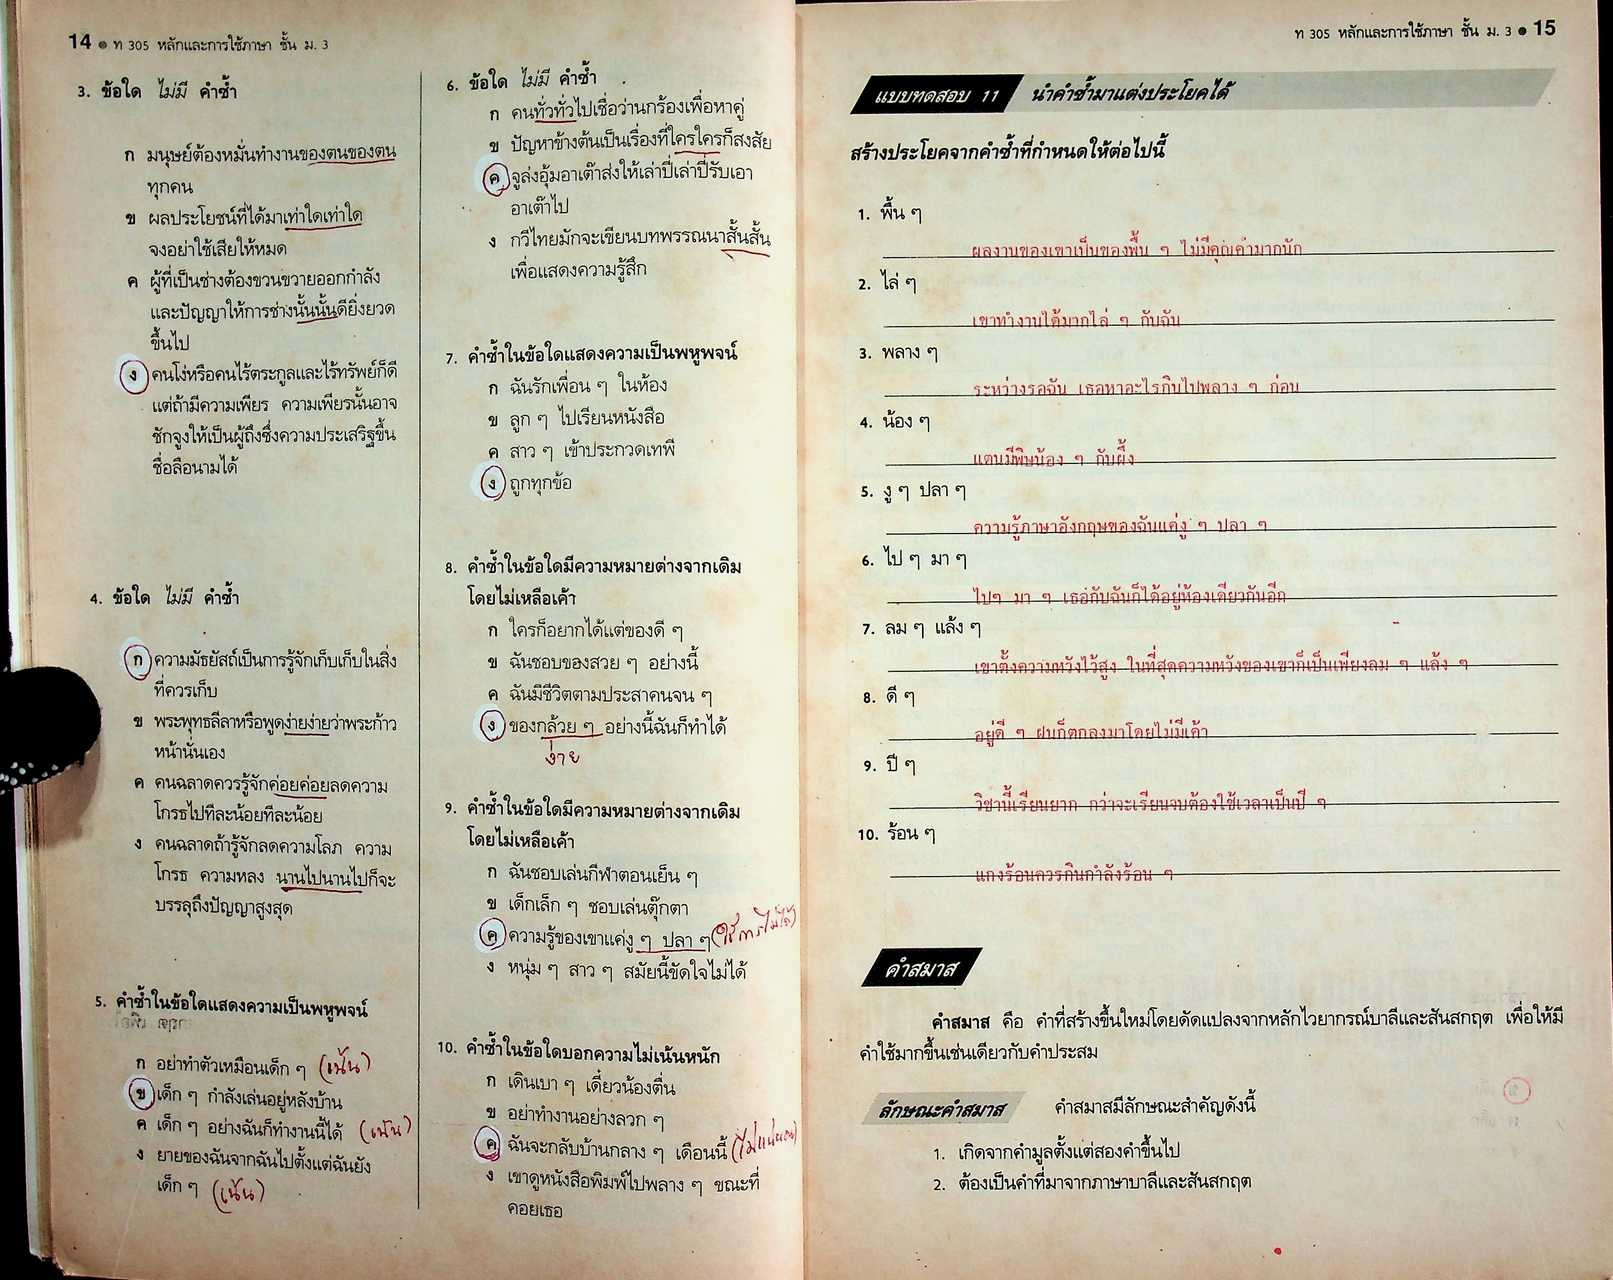 14 ● ท 305 หลักและการใช้ภาษา ชั้น ม. 3
3. ข้อใด ไม่มี คำซ้ำ
ก มนุษย์ต้องหมั่นทำงานของตนของตน
ทุกคน
ข ผลประโยชน์ที่ได้มาเท่าใดเท่าใด
จงอย่าใช้เสียให้หมด
ค ผู้ที่เป็นช่างต้องขวนขวายออกกำลัง
และปัญญาให้การช่างนั้นนั้นดียิ่งยวด
ขึ้นไป
ง คนโง่หรือคนไร้ตระกูลและไร้ทรัพย์ก็ดี
แต่ถ้ามีความเพียร ความเพียรนั้นอาจ
ชักจูงให้เป็นผู้ถึงซึ่งความประเสริฐขึ้น
ชื่อลือนามได้
4. ข้อใด ไม่มี คำซ้ำ
ก ความมัธยัสถ์เป็นการรู้จักเก็บเก็บในสิ่ง
ที่ควรเก็บ
ข พระพุทธลีลาหรือพูดง่ายง่ายว่าพระก้าว
หน้านั่นเอง
ค คนฉลาดควรรู้จักค่อยค่อยลดความ
โกรธไปทีละน้อยทีละน้อย
ง คนฉลาดถ้ารู้จักลดความโลภ ความ
โกรธ ความหลง นานไปนานไปก็จะ
บรรลุถึงปัญญาสูงสุด
5. คำซ้ำในข้อใดแสดงความเป็นพหูพจน์
ก อย่าทำตัวเหมือนเด็ก ๆ (เน้น)
ข เด็ก ๆ กำลังเล่นอยู่หลังบ้าน
ค เด็ก ๆ อย่างฉันก็ทำงานนี้ได้ (เน้น)
ง ยายของฉันจากฉันไปตั้งแต่ฉันยัง
เด็ก ๆ (เน้น)
6. ข้อใด ไม่มี คำซ้ำ
ก คนทั่วทั่วไปเชื่อว่านกร้องเพื่อหาคู่
ข ปัญหาข้างต้นเป็นเรื่องที่ใครใครก็สงสัย
ค จูล่งอุ้มอาเต๊าส่งให้เล่าปี่เล่าปี่รับเอา
อาเต๊าไป
ง กวีไทยมักจะเขียนบทพรรณนาสั้นสั้น
เพื่อแสดงความรู้สึก
7. คำซ้ำในข้อใดแสดงความเป็นพหูพจน์
ก ฉันรักเพื่อน ๆ ในห้อง
ข ลูก ๆ ไปเรียนหนังสือ
ค สาว ๆ เข้าประกวดเทพี
ง ถูกทุกข้อ
8. คำซ้ำในข้อใดมีความหมายต่างจากเดิม
โดยไม่เหลือเค้า
ก ใครก็อยากได้แต่ของดี ๆ
ข ฉันชอบของสวย ๆ อย่างนี้
ค ฉันมีชีวิตตามประสาคนจน ๆ
ง ของกล้วย ๆ อย่างนี้ฉันก็ทำได้
ง่าย
9. คำซ้ำในข้อใดมีความหมายต่างจากเดิม
โดยไม่เหลือเค้า
ก ฉันชอบเล่นกีฬาตอนเย็น ๆ
ข เด็กเล็ก ๆ ชอบเล่นตุ๊กตา
ค ความรู้ของเขาแค่งู ๆ ปลา ๆ (ใช้การไม่ได้)
ง หนุ่ม ๆ สาว ๆ สมัยนี้ขัดใจไม่ได้
10. คำซ้ำในข้อใดบอกความไม่เน้นหนัก
ก เดินเบา ๆ เดี๋ยวน้องตื่น
ข อย่าทำงานอย่างลวก ๆ
ค ฉันจะกลับบ้านกลาง ๆ เดือนนี้ (ไม่แน่นอน)
ง เขาดูหนังสือพิมพ์ไปพลาง ๆ ขณะที่
คอยเธอ
ท 305 หลักและการใช้ภาษา ชั้น ม. 3 ● 15
แบบทดสอบ 11 นำคำซ้ำมาแต่งประโยคได้
สร้างประโยคจากคำซ้ำที่กำหนดให้ต่อไปนี้
1. พื้น ๆ
ผลงานของเขาเป็นของพื้น ๆ ไม่มีคุณค่ามากนัก
2. ไล่ ๆ
เขาทำงานได้มากไล่ ๆ กับฉัน
3. พลาง ๆ
ระหว่างรอฉัน เธอหาอะไรกินไปพลาง ๆ ก่อน
4. น้อง ๆ
แตนมีพิษน้อง ๆ กับผึ้ง
5. งู ๆ ปลา ๆ
ความรู้ภาษาอังกฤษของฉันแค่งู ๆ ปลา ๆ
6. ไป ๆ มา ๆ
ไปๆ มา ๆ เธอกับฉันก็ได้อยู่ห้องเดียวกันอีก
7. ลม ๆ แล้ง ๆ
เขาตั้งความหวังไว้สูง ในที่สุดความหวังของเขาก็เป็นเพียงลม ๆ แล้ง ๆ
8. ดี ๆ
อยู่ดี ๆ ฝนก็ตกลงมาโดยไม่มีเค้า
9. ปี ๆ
วิชานี้เรียนยาก กว่าจะเรียนจบต้องใช้เวลาเป็นปี ๆ
10. ร้อน ๆ
แกงร้อนควรกินกำลังร้อน ๆ
คำสมาส
คำสมาส คือ คำที่สร้างขึ้นใหม่โดยดัดแปลงจากหลักไวยากรณ์บาลีและสันสกฤต เพื่อให้มี
คำใช้มากขึ้นเช่นเดียวกับคำประสม
ลักษณะคำสมาส คำสมาสมีลักษณะสำคัญดังนี้
1. เกิดจากคำมูลตั้งแต่สองคำขึ้นไป
2. ต้องเป็นคำที่มาจากภาษาบาลีและสันสกฤต